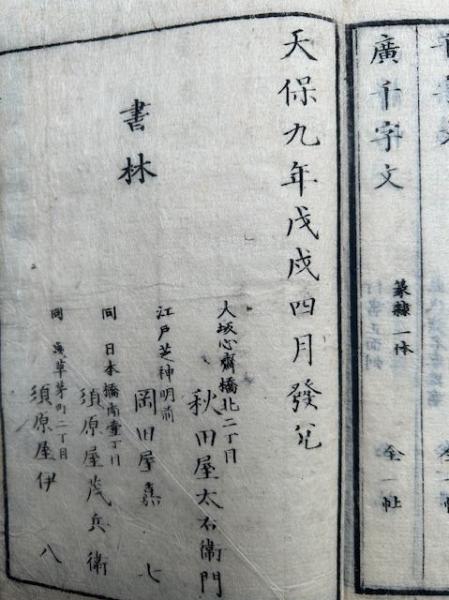 廣千字文 篆隸一体 全一帖
天保九年戊戌四月發兌
書林
大坂心齋橋北二丁目
秋田屋太右衛門
江戸芝神明前
岡田屋嘉七
同 日本橋南壹丁目
須原屋茂兵衛
同 浅草茅町二丁目
須原屋伊八